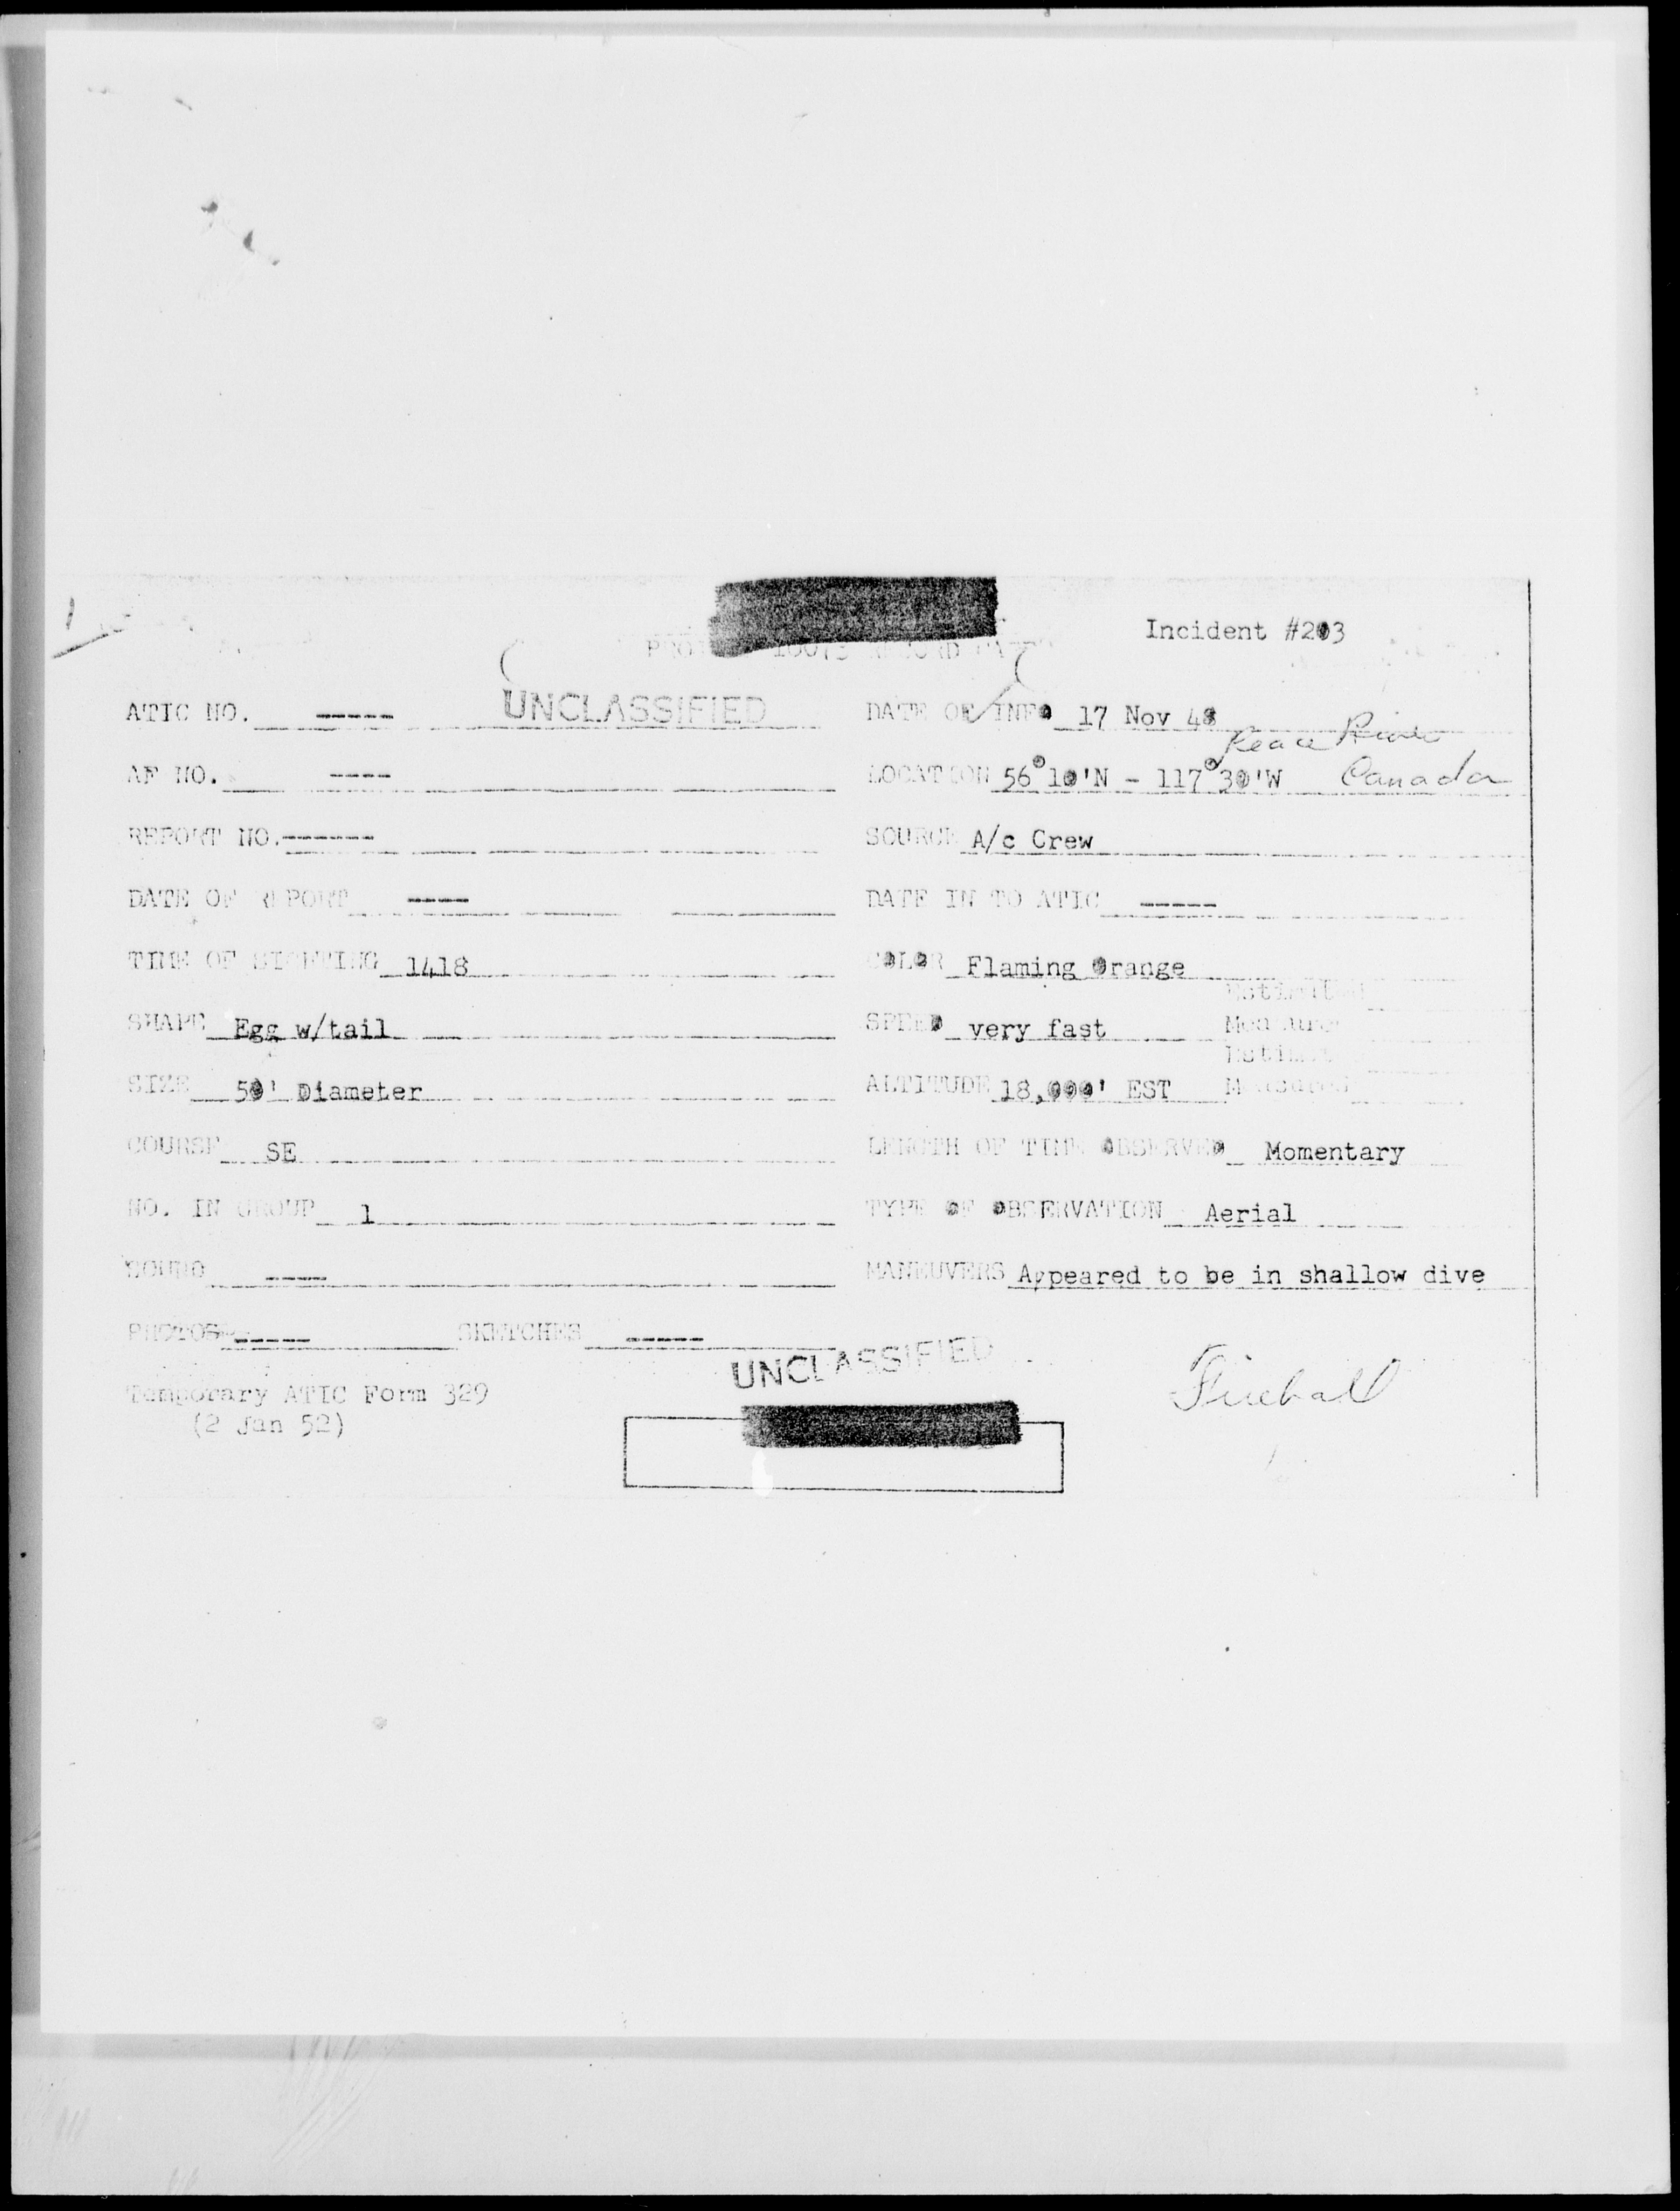 Incident #203
10073 RECORD CARD
ATIC NO. ----- UNCLASSIFIED DATE OF INFO 17 Nov 48
Peace River
AF NO. ---- LOCATION 56°10'N - 117°30'W Canada
REPORT NO. ------ SOURCE A/c Crew
DATE OF REPORT ---- DATE IN TO ATIC -----
TIME OF SIGHTING 1418 COLOR Flaming Orange
Estimated
SHAPE Egg w/tail SPEED very fast Measured
Estimated
SIZE 50' Diameter ALTITUDE 18,000' EST Measured
COURSE SE LENGTH OF TIME OBSERVED Momentary
NO. IN GROUP 1 TYPE OF OBSERVATION Aerial
SOUND ---- MANEUVERS Appeared to be in shallow dive
PHOTOS ----- SKETCHES -----
UNCLASSIFIED
Temporary ATIC Form 329 Fireball
(2 Jan 52)